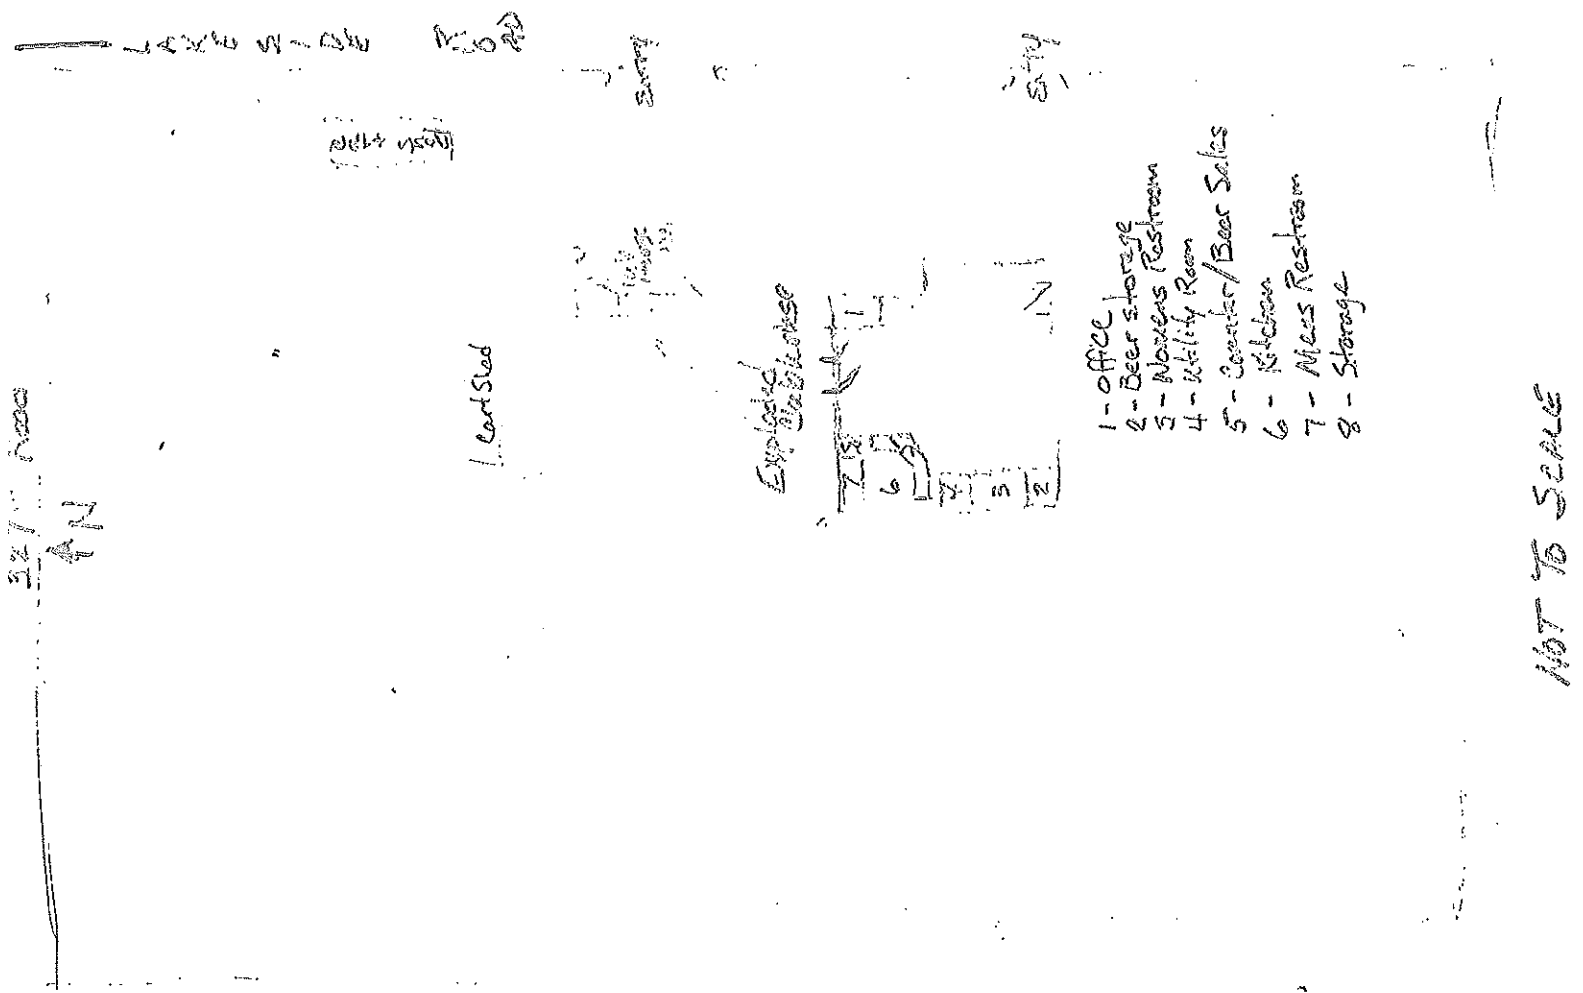 LAKESIDE ROAD
Entry
Entry
Cart Shed
Exploded
Clubhouse
N
1
7
8
6
5
4
3
2
N
1 - office
2 - Beer storage
3 - Womens Restroom
4 - Utility Room
5 - Counter/Beer Sales
6 - Kitchen
7 - Mens Restroom
8 - Storage
NOT TO SCALE